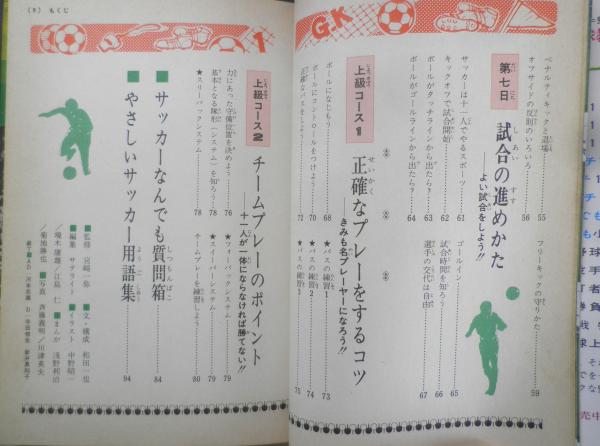 G.K
ペナルティキックと退場……55
オフサイドの反則のいろいろ……56
フリーキックの守りかた……59
第七日 試合の進めかた
―よい試合をしよう!!
サッカーは十一人でやるスポーツ……61
キックオフで試合開始……62
ボールがタッチラインから出たら?……63
ボールがゴールラインから出たら?……64
ゴールイン……65
試合時間を知ろう……66
選手の交代は自由……67
上級コース1 正確なプレーをするコツ
―きみも名プレーヤーになろう!!
ボールになじもう……68
ボールにコントロールをつけよう……70
正確なパスをしよう……71
★パスの練習1……73
★パスの練習2……74
★パスの練習3……75
(9) もくじ
1
上級コース2 チームプレーのポイント
―十一人が一体にならなければ勝てない!!
力にあった守備位置を決めよう……76
基本となる隊形(システム)を知ろう……78
★スリーバックシステム……78
★フォーバックシステム……79
★スイーパーシステム……79
チームプレーを練習しよう……80
■サッカーなんでも質問箱……84
■やさしいサッカー用語集……94
■監修 宮崎一弥 ■文・構成 和田一也
■編集 サテライト ■イラスト 中野昭一
/榎木康雄/広島 仁 ■まんが 浅野利治
/菊池勝也 ■写真 斉藤義明/川津英夫